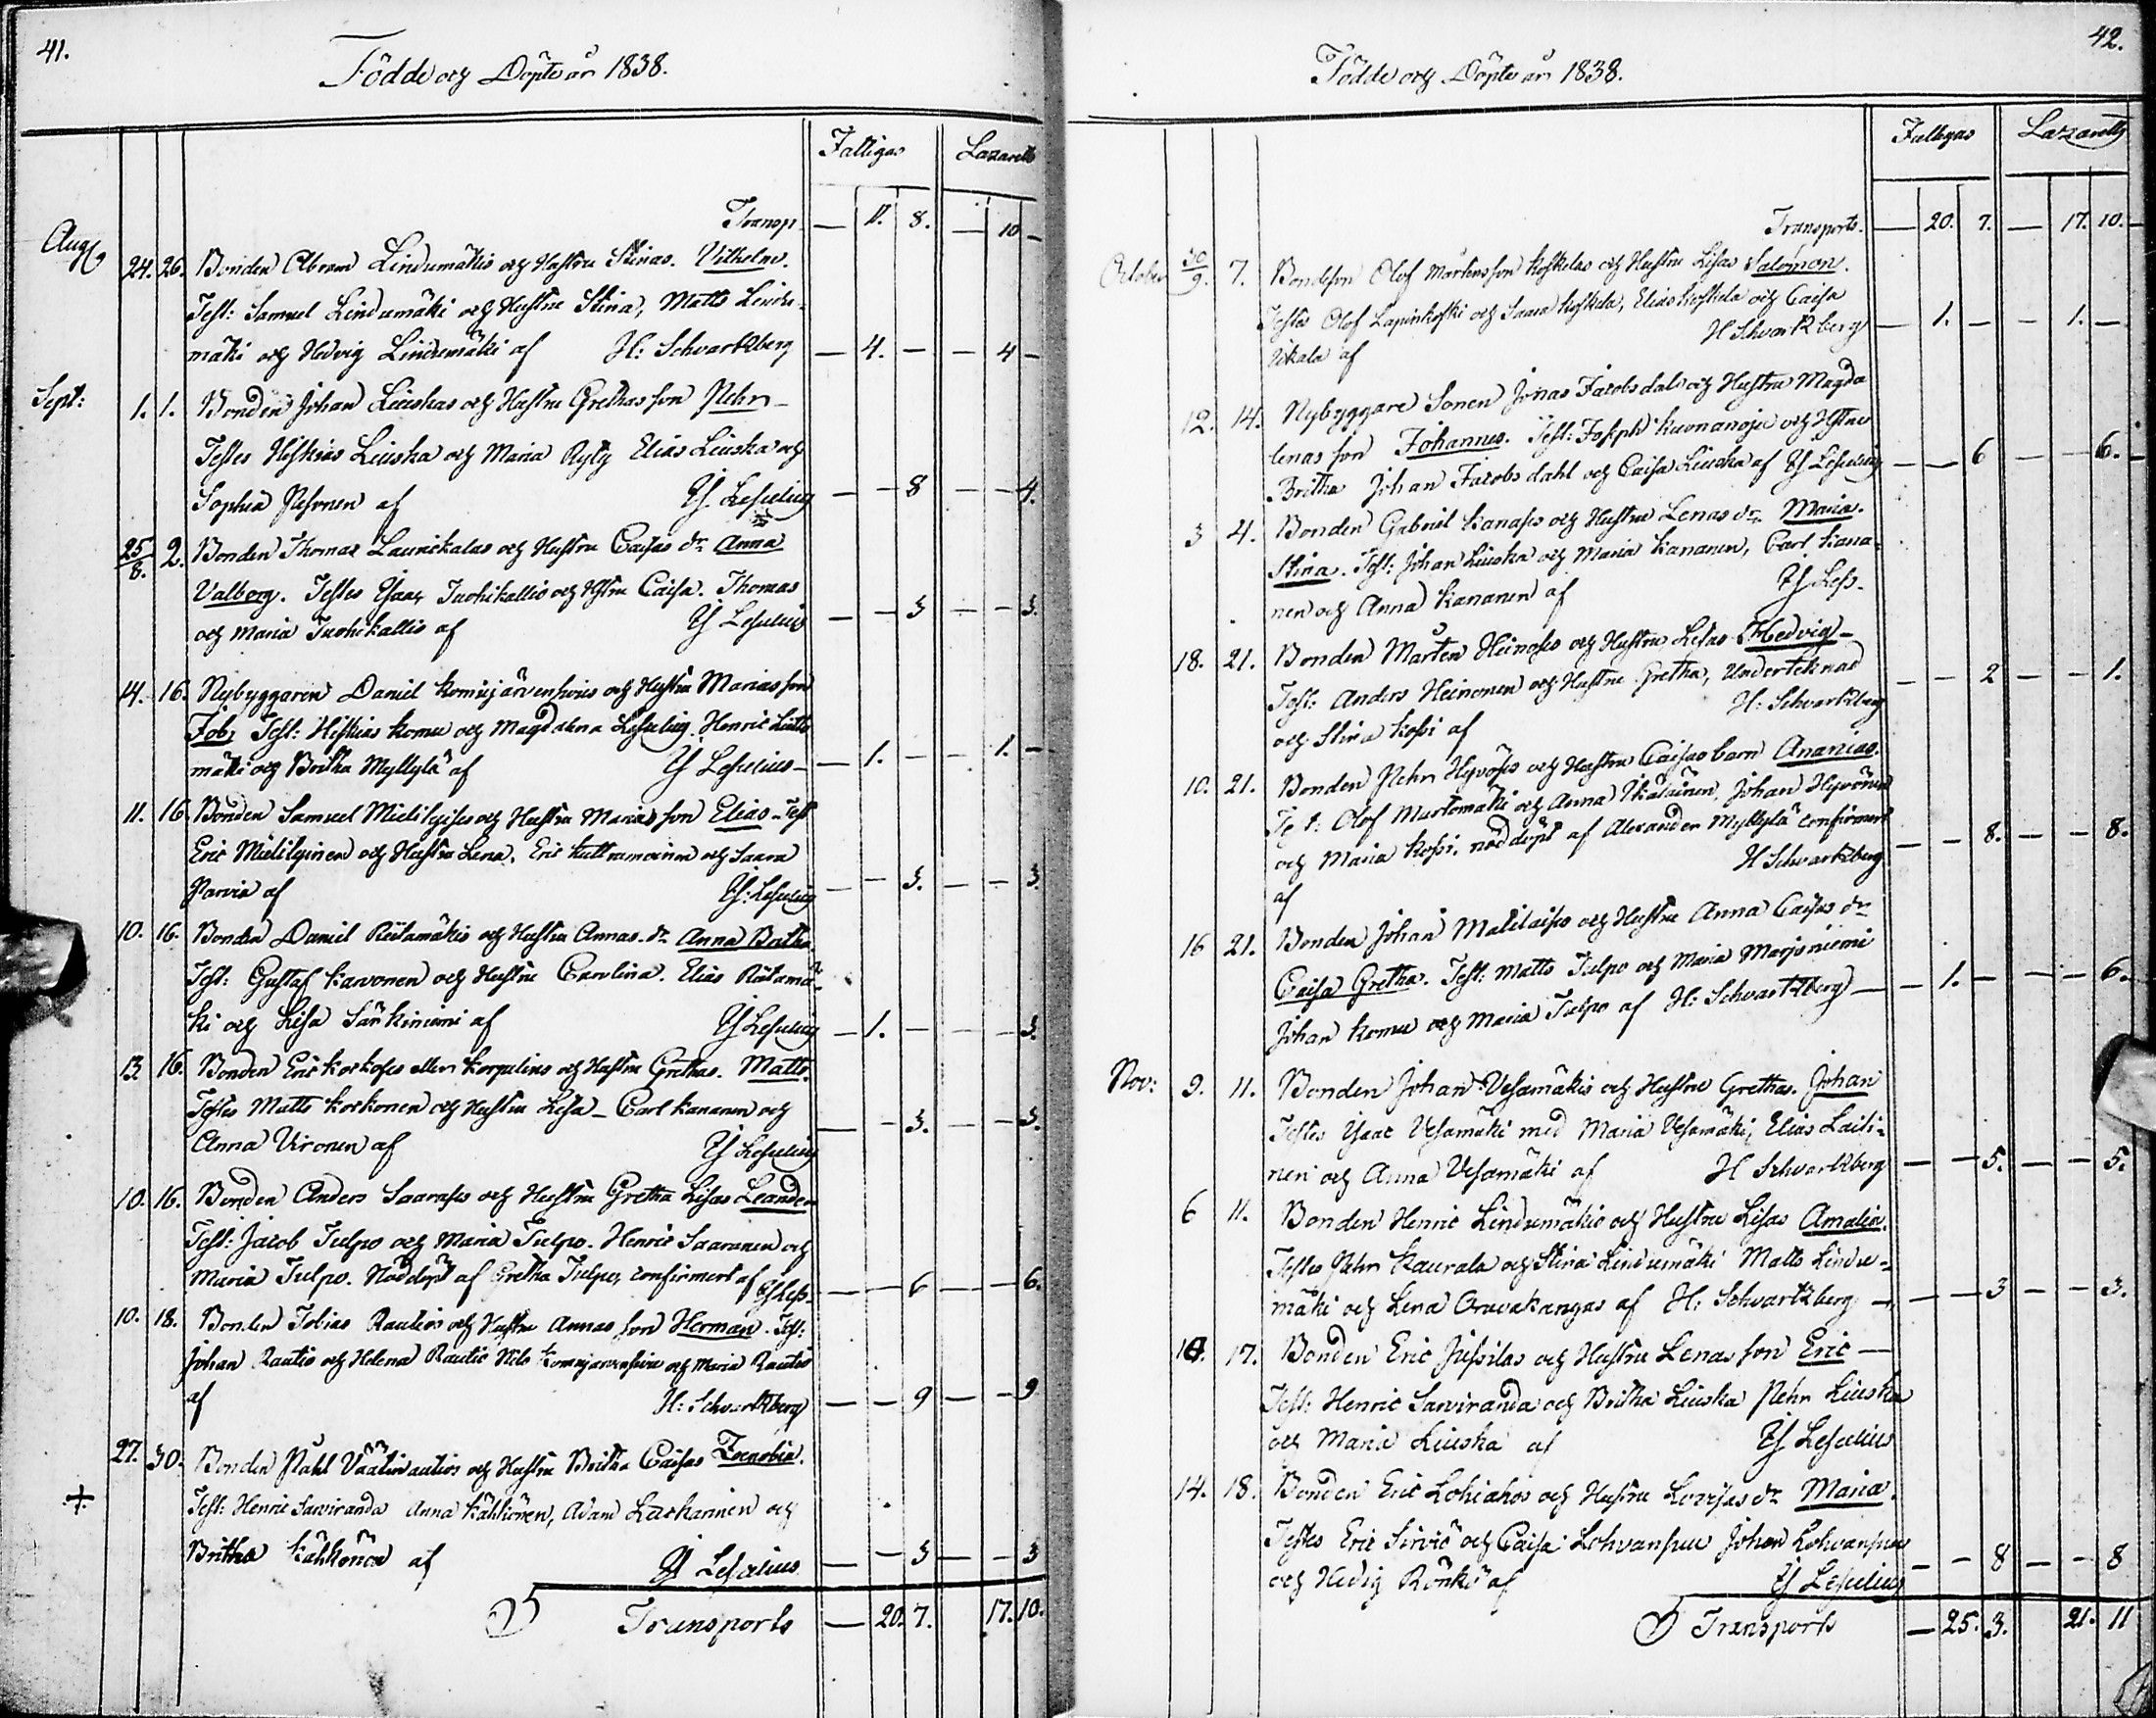 41.
Födde och Döpte år 1838.
Fattigas Lazaretts
Transp. — 11. 8. — 10 —
Aug. 24. 26. Bonden Abram Lindumäkis och Hustru Stinas. Vilhelm.
Test: Samuel Lindumäki och Hustru Stina, Matts Lindu-
mäki och Hedvig Lindumäki af H: Schvartzberg — 4. — — 4 —
Sept: 1. 1. Bonden Johan Liuskas och Hustru Grethas son Pehr —
Testes Heskias Liuska och Maria Ryty Elias Liuska och
Sophia Pesonen af Is Lesselius — — 8 — — 4.
25/8. 2. Bonden Thomas Launikalas och Hustru Caisas dr Anna
Valborg. Testes Isaac Juohikallio och Hstru Caisa. Thomas
och Maria Juohikallio af Is Lesselius — — 3 — — 3.
14. 16. Nybyggaren Daniel Komujärvensivus och Hustru Marias son
Job, Test: Heskias Komu och Magdalena Lesselius. Henric
mäki och Britha Myllylä af Is Lesselius — — 1. — — 1. —
11. 16. Bonden Samuel Mielilyises och Hustru Marias son Elias — Test
Eric Mielilyinen och Hustru Lena. Eric och Saara
Parvia af Is: Lesselius — — 3. — — 3.
10. 16. Bonden Daniel Riitamäkis och Hustru Annas dr Anna Britha.
Test: Gustaf Karvonen och Hustru Carolina. Elias Riitamä-
ki och Lisa Särkiniemi af Is Lesselius — 1. — — — 3.
13. 16. Bonden Eric Korkoses eller Korpelins och Hustru Grethas. Matts.
Testes Matts Korkonen och Hustru Lisa — Carl Kananen och
Anna Vironen af Is Lesselius — — 3. — — 3.
10. 16. Bonden Anders Saarases och Hustru Gretha Lisas Leander
Test: Jacob Tulpo och Maria Tulpo. Henric Saaranen och
Maria Tulpo. Nöddöpt af Gretha Tulpo, confirmert af Is Less. — — 6 — — 6.
10. 18. Bonden Tobias Rautios och Hustru Annas son Herman. Test:
Johan Rautio och Helena Rautio Nils Komujärvensivu och Maria Rautio
af H: Schvartzberg — — 9 — — 9
27. 30. Bonden Påhl Väätirautios och Hustru Britha Caisas Zenobia.
+ Test: Henric Sarviranda Anna Kähkönen, Adam Laskarinen och
Britha Kähkönen af Is Lesselius — — 3 — — 3
Transports — 20. 7. 17. 10.
42.
Födde och Döpte år 1838.
Fattigas Lazaretts
Transports. — 20. 7. — 17. 10.
October 30/9. 7. Bondeson Olof Mårtensson Koskelas och Hustru Lisas Salomon.
Testes Olof Lapinkoski och Saara Koskela, Elias Koskela och Caisa
af H Schvartzberg — 1. — — 1. —
12. 14. Nybyggare Sonen Jonas Jacobsdals och Hustru Magda
lenas son Johannes. Test: Joseph Kuonanoja och Hstru
Britha Johan Jacobsdahl och Caisa Liuska af Is Lesselius — — 6 — — 6.
3 4. Bonden Gabriel Kanases och Hustru Lenas dr Maria.
Stina. Test: Johan Liuska och Maria Kananen, Carl Kana-
nen och Anna Kananen af Is Less.
18. 21. Bonden Mårten Heinoses och Hustru Lisas Hedvig —
Test: Anders Heinonen och Hustru Gretha, Undertecknad
och Stina Kossi af H: Schvartzberg — — 2 — — 1.
10. 21. Bonden Pehr Hyvöses och Hustru Caisas barn Ananias.
Test: Olof Murtomäki och Anna Ikäläinen, Johan Hyvönen
och Maria Kossi, nöddöpt af Alexander Myllylä confirmert
af H Schvartzberg — — 8. — — 8.
16 21. Bonden Johan Matilaises och Hustru Anna Caisas dr
Caisa Gretha. Test: Matts Tulpo och Maria Marjoniemi
Johan Komu och Maria Tulpo af H: Schvartzberg — — 1. — — — 6.
Nov: 9. 11. Bonden Johan Vesamäkis och Hustru Grethas. Johan
Testes Isaac Vesamäki med Maria Vesamäki, Elias Laiti-
nen och Anna Vesamäki af H Schvartzberg — — 5. — — 5.
6 11. Bonden Henric Lindumäkis och Hustru Lisas Amalia.
Testes Pehr Kaurala och Stina Lindumäki Matts Lindu-
mäki och Lena Oravakangas af H: Schvartzberg — — 3 — — 3.
17. Bonden Eric Jussilas och Hustru Lenas son Eric —
Test: Henric Sarviranda och Britha Liuska Pehr Liuska
och Maria Liuska af Is Lesselius
14. 18. Bonden Eric Lohiahos och Hustru Lovisas dr Maria.
Testes Eric Sirviö och Caisa Lohvansuu Johan Lohvansuu
och Hedvig Rönkö af Is Lesselius — — 8 — — 8
Transports — 25. 3. 21. 11